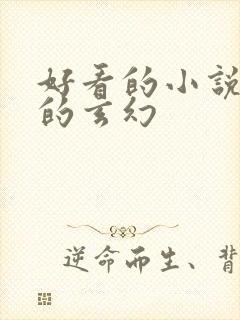 好看的小説
的玄幻
逆命而生、背